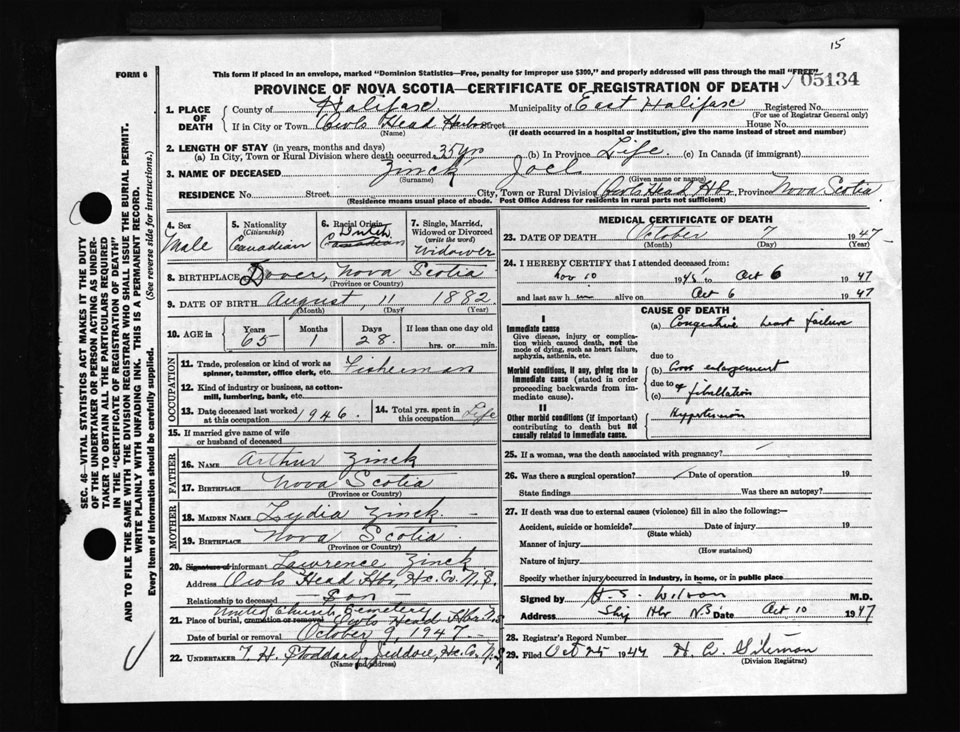 15
FORM 6
This form if placed in an envelope, marked "Dominion Statistics—Free, penalty for improper use $300," and properly addressed will pass through the mail "FREE"
05134
PROVINCE OF NOVA SCOTIA—CERTIFICATE OF REGISTRATION OF DEATH
SEC. 46—VITAL STATISTICS ACT MAKES IT THE DUTY
OF THE UNDERTAKER OR PERSON ACTING AS UNDER-
TAKER TO OBTAIN ALL THE PARTICULARS REQUIRED
IN THE "CERTIFICATE OF REGISTRATION OF DEATH"
AND TO FILE THE SAME WITH THE DIVISION REGISTRAR WHO SHALL ISSUE THE BURIAL PERMIT.
WRITE PLAINLY WITH UNFADING INK. THIS IS A PERMANENT RECORD.
Every item of information should be carefully supplied. (See reverse side for instructions.)
1. PLACE OF DEATH County of Halifax Municipality of East Halifax Registered No.
(For use of Registrar General only)
If in City or Town Owls Head Harbor Street House No.
(Name) (If death occurred in a hospital or institution, give the name instead of street and number)
2. LENGTH OF STAY (in years, months and days)
(a) In City, Town or Rural Division where death occurred 35 yrs (b) In Province Life. (c) In Canada (if immigrant)
3. NAME OF DECEASED Zinck Joel
(Surname) (Given name or names)
RESIDENCE No. Street City, Town or Rural Division Owls Head Hbr. Province Nova Scotia
(Residence means usual place of abode. Post Office Address for residents in rural parts not sufficient)
4. Sex Male
5. Nationality (Citizenship) Canadian
6. Racial Origin Dutch Canadian
7. Single, Married, Widowed or Divorced (write the word) Widower
8. BIRTHPLACE Dover, Nova Scotia
(Province or Country)
9. DATE OF BIRTH August, 11 1882
(Month) (Day) (Year)
10. AGE in Years 65 Months 1 Days 28. If less than one day old hrs. or min.
OCCUPATION
11. Trade, profession or kind of work as spinner, teamster, office clerk, etc. Fisherman
12. Kind of industry or business, as cotton-mill, lumbering, bank, etc.
13. Date deceased last worked at this occupation 1946. 14. Total yrs. spent in this occupation Life
15. If married give name of wife or husband of deceased
FATHER
16. NAME Arthur Zinck
17. BIRTHPLACE Nova Scotia
(Province or Country)
MOTHER
18. MAIDEN NAME Lydia Zinck.
19. BIRTHPLACE Nova Scotia
(Province or Country)
20. Signature of informant Lawrence Zinck
Address Owls Head Hbr, Hx. Co. N.S.
Relationship to deceased Son
United Church Cemetery
21. Place of burial, cremation or removal Owls Head Hbr. N.S.
Date of burial or removal October 9, 1947.
22. UNDERTAKER T. H. Stoddard, Jeddore, Hx. Co. N.S
(Name and address)
MEDICAL CERTIFICATE OF DEATH
23. DATE OF DEATH October 7 1947
(Month) (Day) (Year)
24. I HEREBY CERTIFY that I attended deceased from:
Nov 10 1945 to Oct 6 1947
and last saw him alive on Oct 6 1947
CAUSE OF DEATH
I
Immediate cause
Give disease, injury or complication which caused death, not the mode of dying, such as heart failure, asphyxia, asthenia, etc.
(a) Congestive heart failure
due to
Morbid conditions, if any, giving rise to immediate cause (stated in order proceeding backwards from immediate cause).
(b) Gross enlargement
due to
(c) & fibrillation
II
Other morbid conditions (if important) contributing to death but not causally related to immediate cause.
Hypertension
25. If a woman, was the death associated with pregnancy?
26. Was there a surgical operation? Date of operation 19
State findings Was there an autopsy?
27. If death was due to external causes (violence) fill in also the following:—
Accident, suicide or homicide? Date of injury 19
(State which)
Manner of injury
(How sustained)
Nature of injury
Specify whether injury occurred in industry, in home, or in public place
Signed by H. S. Wilson M.D.
Address Ship Hbr N.S. Date Oct 10 1947
28. Registrar's Record Number
29. Filed Oct 25 1947
(Division Registrar)